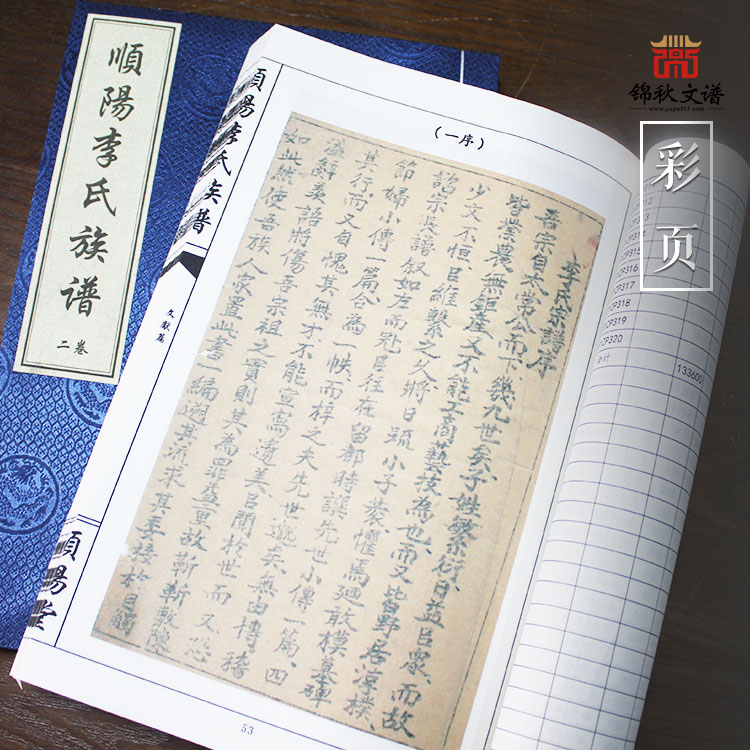 順陽李氏族譜
二卷
順陽李氏族譜
文献篇
順陽堂
(一序)
李氏宗譜序
吾宗自太常公而下幾九世矣子姓繁衍日益㠯衆而故
皆業農無鉅産又不能工商藝技為也而又皆野居淳樸
少文不恒㠯維繫之久將日疏小子裝懼焉廼敢模墓碑
諮宗長譜叙如左而㠯往在留都時譔先世小傳一篇四
節婦小傳一篇合為一帙而梓之夫先世邈矣無由博稽
其行而又自愧其無才不能宣寫遺美㠯聞於世而又恐
辭美語將傷吾宗祖之實則其為罪重故斬斬敬
如此然使吾族人家置此書一編遡其流求其
53
29316
29317
29318
29319
29320
合计
133600
锦秋文谱
www.jiapu315.com
彩页